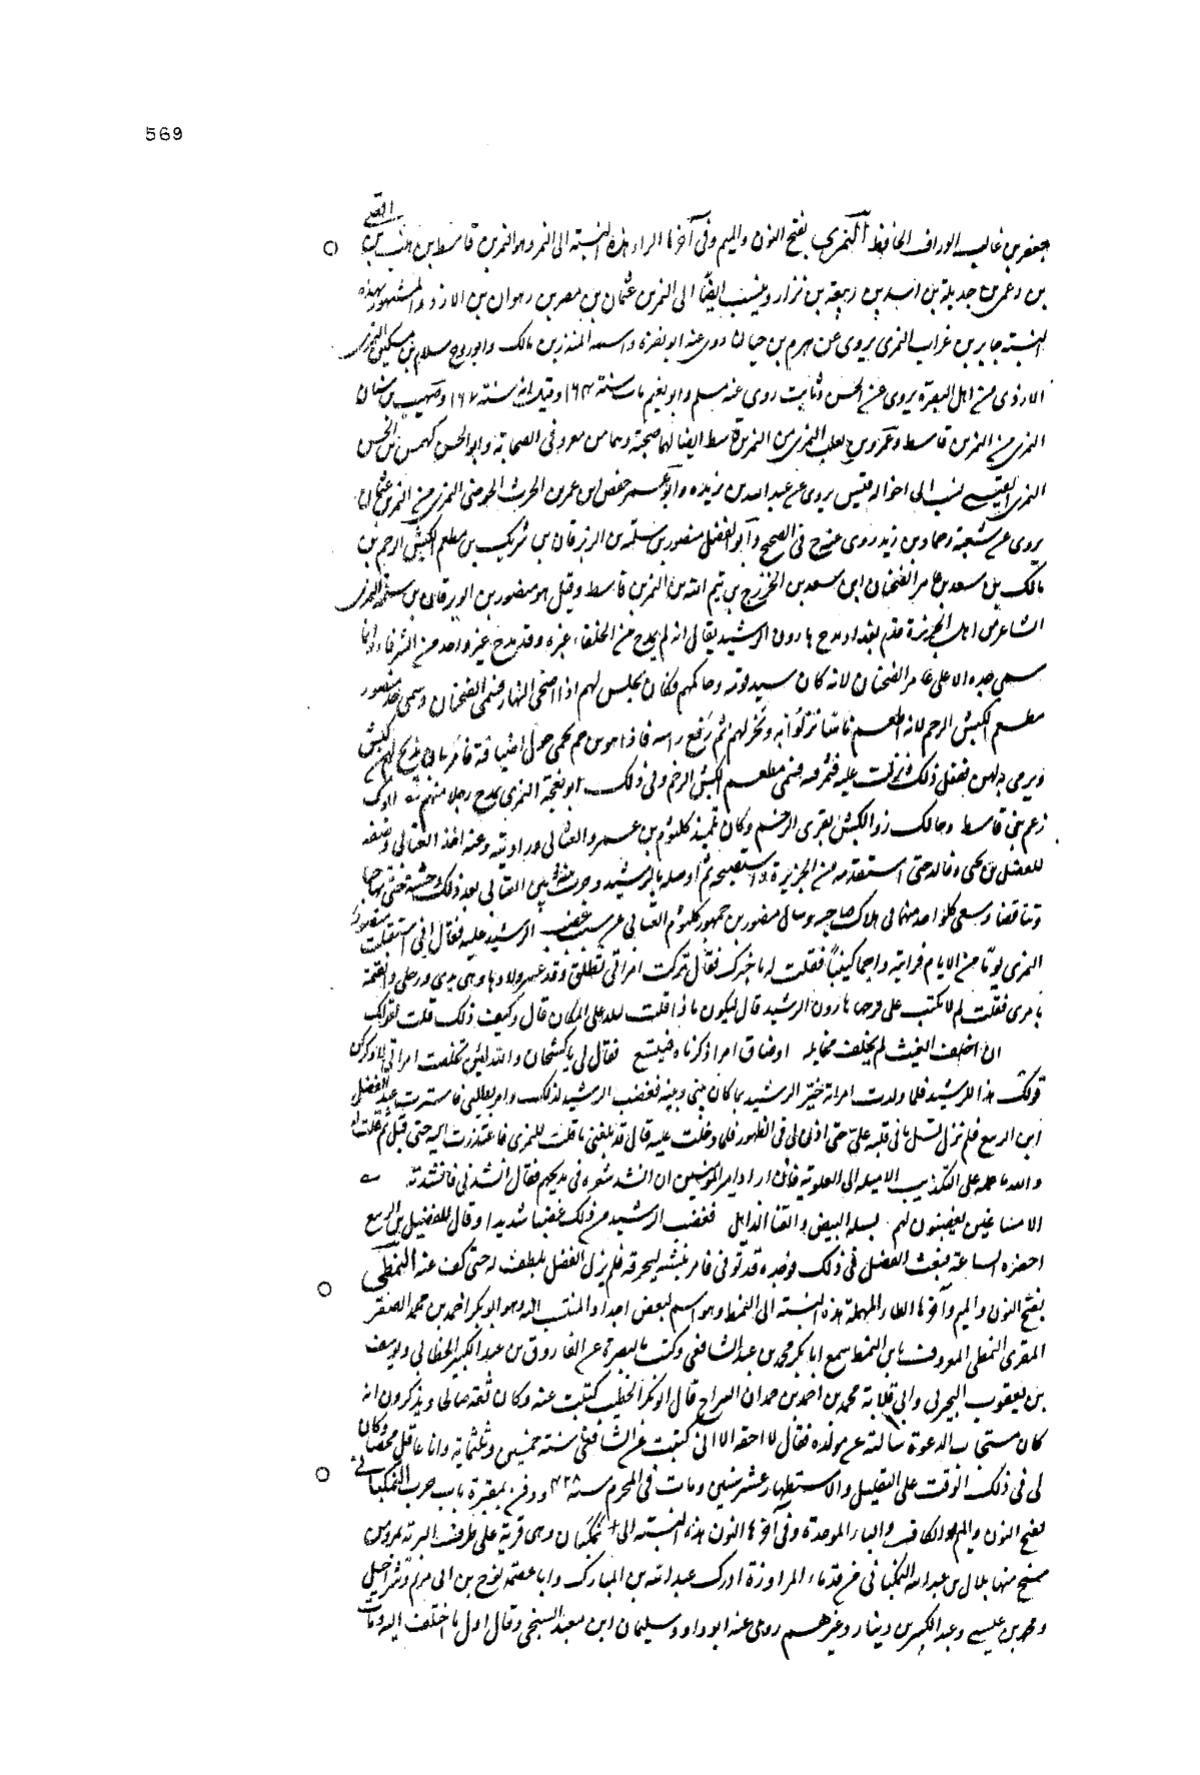 569
القمى
جعفر بن غالب الوراق الحافظ النمري بفتح النون والميم وفي آخرها الراء هذه النسبة الى النمر وهو النمر بن قاسط بن هنب بن
بن دعمي بن جديلة بن اسد بن ربيعة بن نزار وينسب ايضا الى النمر بن عثمان بن نصر بن زهران بن الازد والمشهور بهذه
النسبة جابر بن غراب النمري يروى عن هرم بن حيان روى عنه ابو نضرة واسمه المنذر بن مالك وابو روح سلام بن مسكين النمري
الازدي من اهل البصرة يروى عن الحسن وثابت روى عنه مسلم وابو نعيم مات سنة ١٦٤ وقيل انه سنة ١٦٧ وصهيب بن سنان
النمري من النمر بن قاسط وعمرو بن تغلب النمري من النمر بن قاسط ايضا لهما صحبة وهما من معروفي الصحابة وابو الحسن كهمس بن الحسن
النمري القيسي نسب الى اخواله قيس يروى عن عبد الله بن بريدة وابو عمر حفص بن عمر بن الحرث الحوضي النمري من النمر بن عثمان
يروى عن شعبة وحماد بن زيد روى عنه خ في الصحيح وابو الفضل منصور بن سلمة بن الزبرقان بن شريك بن مطعم الكبش الرخم بن
مالك بن سعد بن عامر الضحيان ابن سعد بن الخزرج بن تيم الله بن النمر بن قاسط وقيل هو منصور بن الزبرقان بن سلمة النمري
الشاعر من اهل الجزيرة قدم بغداد ومدح هارون الرشيد يقال انه لم يمدح من الخلفاء غيره وقد مدح غير واحد من الشرفاء وانما
سمي جده الاعلى عامر الضحيان لانه كان سيد قومه وحاكمهم وكان يجلس لهم اذا اضحى النهار فسمي الضحيان وسمي جد منصور
مطعم الكبش الرخم لانه اطعم ناسا نزلوا به ونحر لهم ثم رفع راسه فاذا هو برخم يحمن حول اضيافه فامر بان يذبح لهن كبش
ويرمى به لهن ففعل ذلك فنزلت عليه فمزقنه فسمي مطعم الكبش الرخم وفي ذلك ابو نعجة النمري يمدح رجلا منهم ابوك
زعيم بني قاسط وخالك ذو الكبش يقري الرخم وكان تلميذ كلثوم بن عمرو العتابي وراويته وعنه اخذ العتابي وصفه
للفضل بن يحيى بن خالد حتى استقدمه من الجزيرة واستصحبه ثم اوصله بالرشيد وجرت بينه وبين العتابي بعد ذلك وحشة حتى تهاجيا
وتناقضا وسعى كل واحد منهما في هلاك صاحبه وسال منصور بن جمهور كلثوم العتابي عن سبب غضب الرشيد عليه فقال اني استقبلت منصور
النمري يوما من الايام فرايته واجما كئيبا فقلت له ما خبرك فقال تركت امراتي تطلق وقد عسر ولادها وهي يدي ورجلي والقيمة
بامري فقلت لم لا تكتب على فرجها هارون الرشيد قال ليكون ماذا قلت لتلد على المكان قال وكيف ذلك قلت لقولك
ان اخلف الغيث لم تخلف مخايله اوضاق امر ذكرناه فيتسع فقال لي يا كشحان والله لئن تخلصت امراتي لاذكرن
قولك هذا للرشيد فلما ولدت امراته خبر الرشيد بما كان بيني وبينه فغضب الرشيد لذلك وامر بطلبي فاستترت عند الفضل
ابن الربيع فلم يزل يسل ما في قلبه علي حتى اذن لي في الظهور فلما دخلت عليه قال قد بلغني ما قلت للنمري فاعتذرت اليه حتى قبل ثم قلت له
والله ما حمله على التكذيب الا ميله الى العلوية فان اراد امير المؤمنين ان انشده شعره في مديحهم فقال انشدني فانشدته
الا مساعير يغضبون لهم بسلة البيض والقنا الذابل فغضب الرشيد من ذلك غضبا شديدا وقال للفضل بن الربيع
احضره الساعة فبعث الفضل في ذلك فوجده قد توفي فامر بنبشه ليحرقه فلم يزل الفضل يلطف له حتى كف عنه النمطي
بفتح النون والميم وآخرها الطاء المهملة هذه النسبة الى النمط وهو اسم لبعض اجداد المنتسب اليه وهو ابو بكر احمد بن محمد الصقر
المقري النمطي المعروف بابن النمط سمع ابا بكر محمد بن عبد الله الشافعي وكتب بالبصرة عن الفاروق بن عبد الكبير الخطابي ويوسف
بن يعقوب النجيرمي وابي قلابة محمد بن احمد بن حمدان السراج قال ابو بكر الخطيب كتبت عنه وكان ثقة صالحا ويذكرون انه
كان مستجاب الدعوة سالته عن مولده فقال لا احقه الا اني كتبت عن الشافعي سنة خمسين وثلثمائة وانا عاقل محصل وكان
لي في ذلك الوقت على التقليل والاستظهار عشر سنين ومات في المحرم سنة ٤٢٨ ودفن بمقبرة باب حرب النمكباني
بفتح النون والميم والكاف والباء الموحدة وفي آخرها النون هذه النسبة الى نمكبان وهي قرية على طرف البرية بمرو من
سنج منها بلال بن عبد الله النمكباني من قدماء المراوزة ادرك عبد الله بن المبارك وابا عصمة نوح بن ابي مريم وشراحيل
ومحمد بن عيسى وعبد الكبير بن دينار وغيرهم روى عنه ابو داود سليمان ابن معبد السنجي وقال اول ما اختلفت اليه ومات